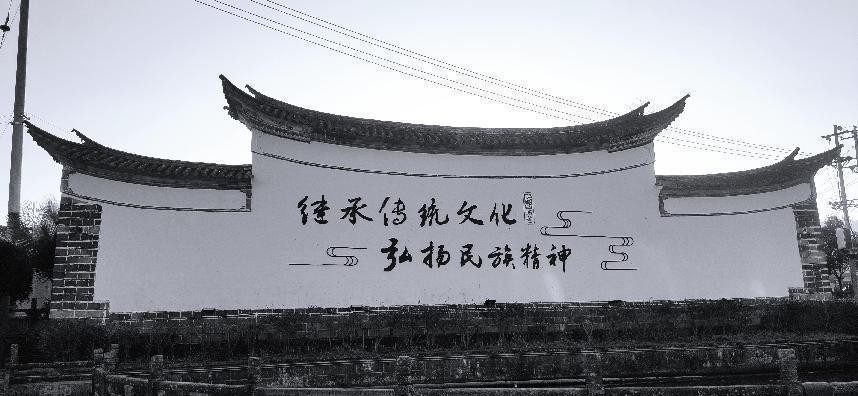 继承传统文化
弘扬民族精神